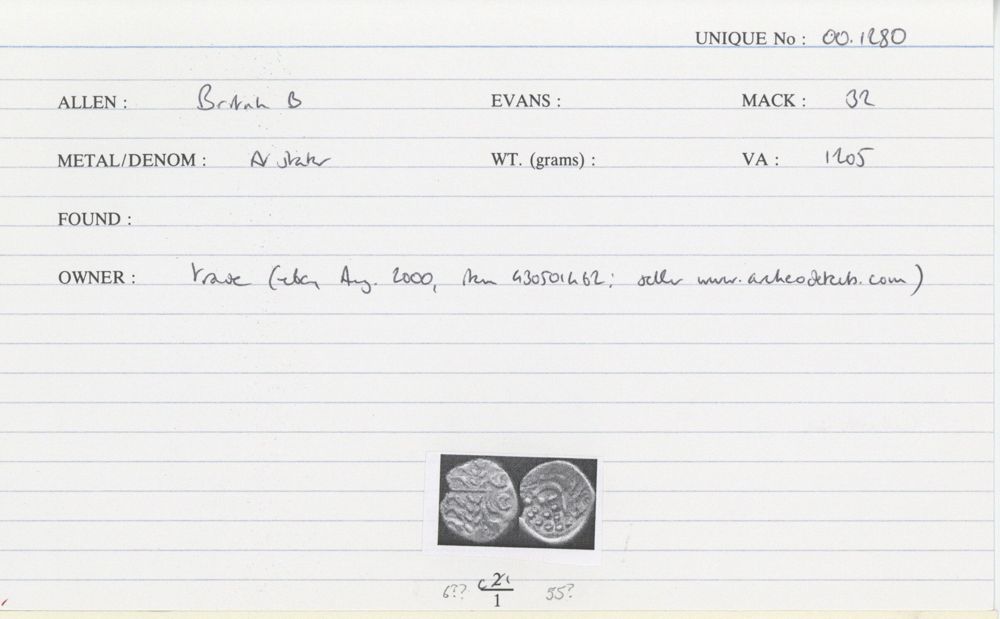 UNIQUE No : 00.1280
ALLEN : British B EVANS : MACK : 32
METAL/DENOM : AV stater WT. (grams) : VA : 1205
FOUND :
OWNER : Trade (eBay Aug. 2000, item 430501462; seller www.archeodetects.com)
6?? 55?
1